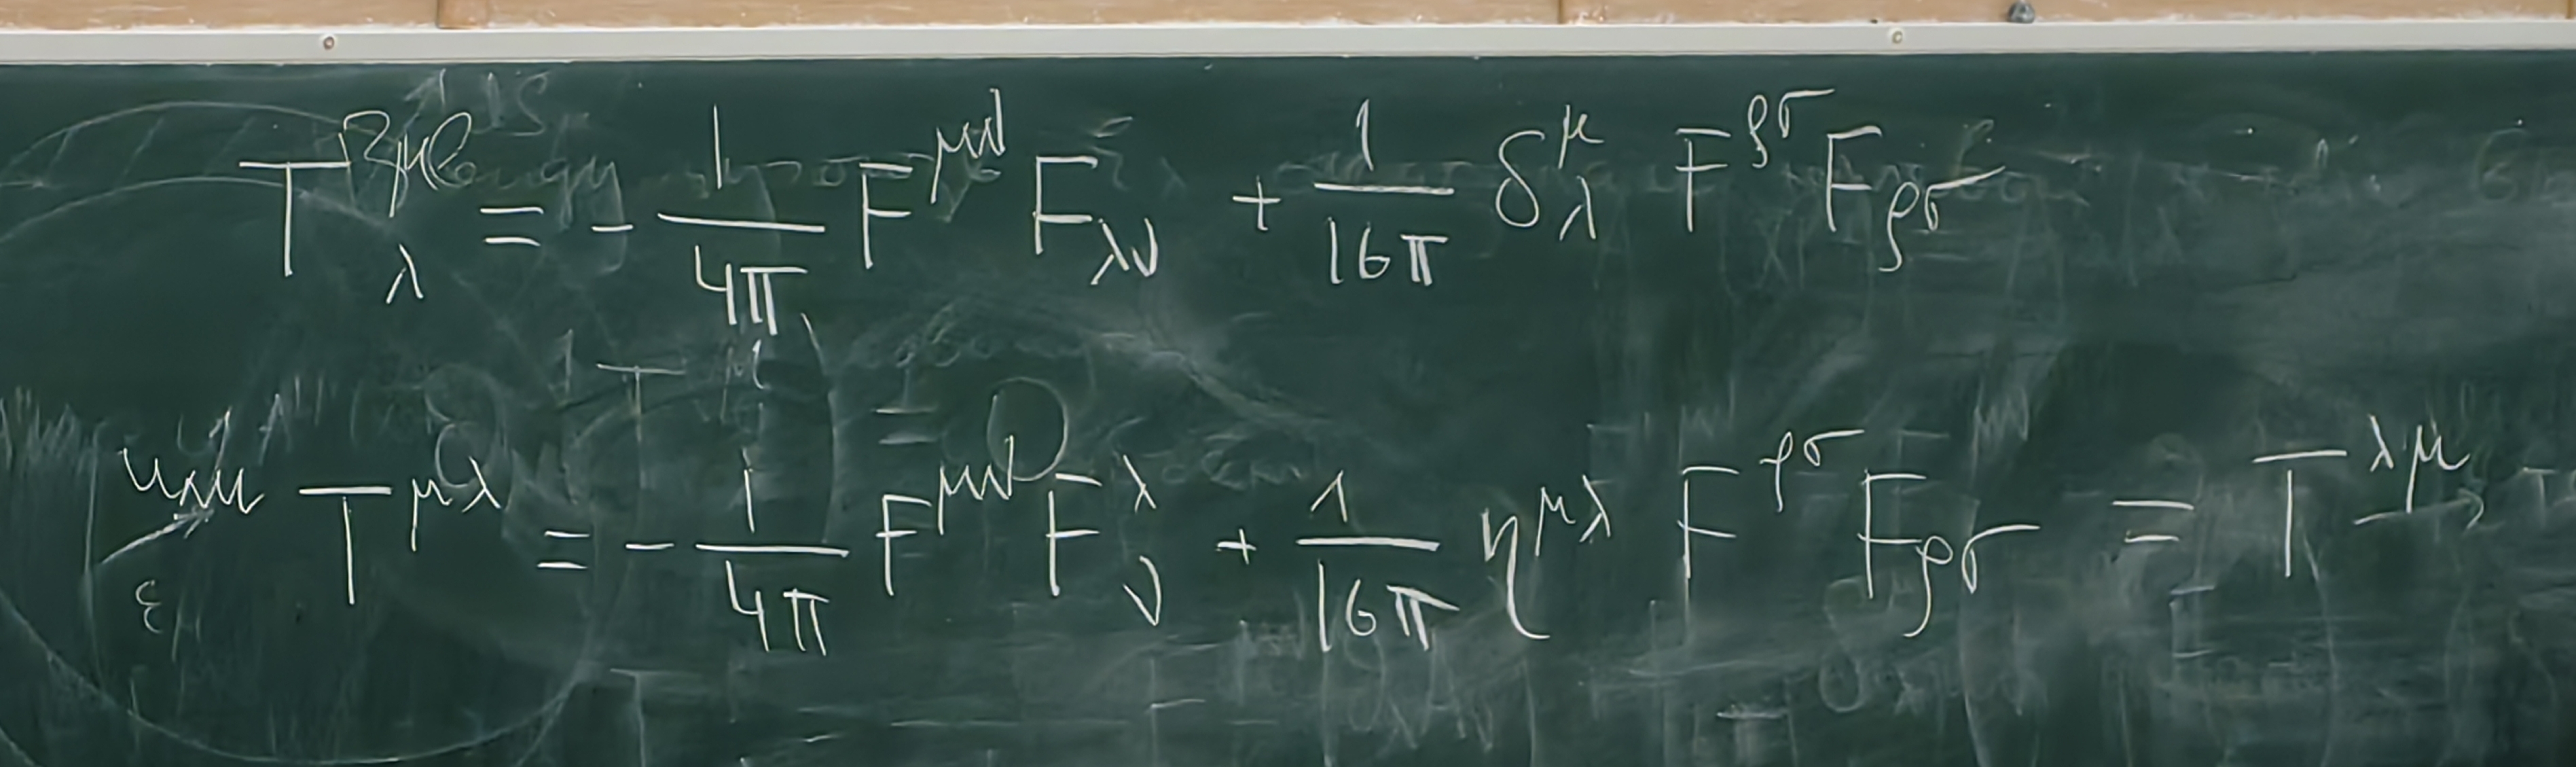 T^μ_λ = - 1/4π F^{μν} F_{λν} + 1/16π δ^μ_λ F^{ρσ} F_{ρσ}
или T^{μλ} = - 1/4π F^{μν} F^λ_ν + 1/16π η^{μλ} F^{ρσ} F_{ρσ} = T^{λμ}